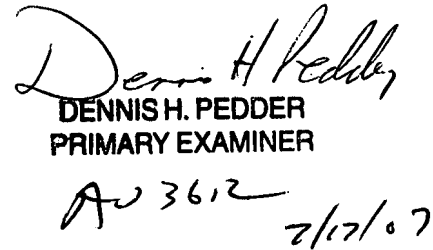 Dennis H Pedder
DENNIS H. PEDDER
PRIMARY EXAMINER
AU 3612
7/17/07